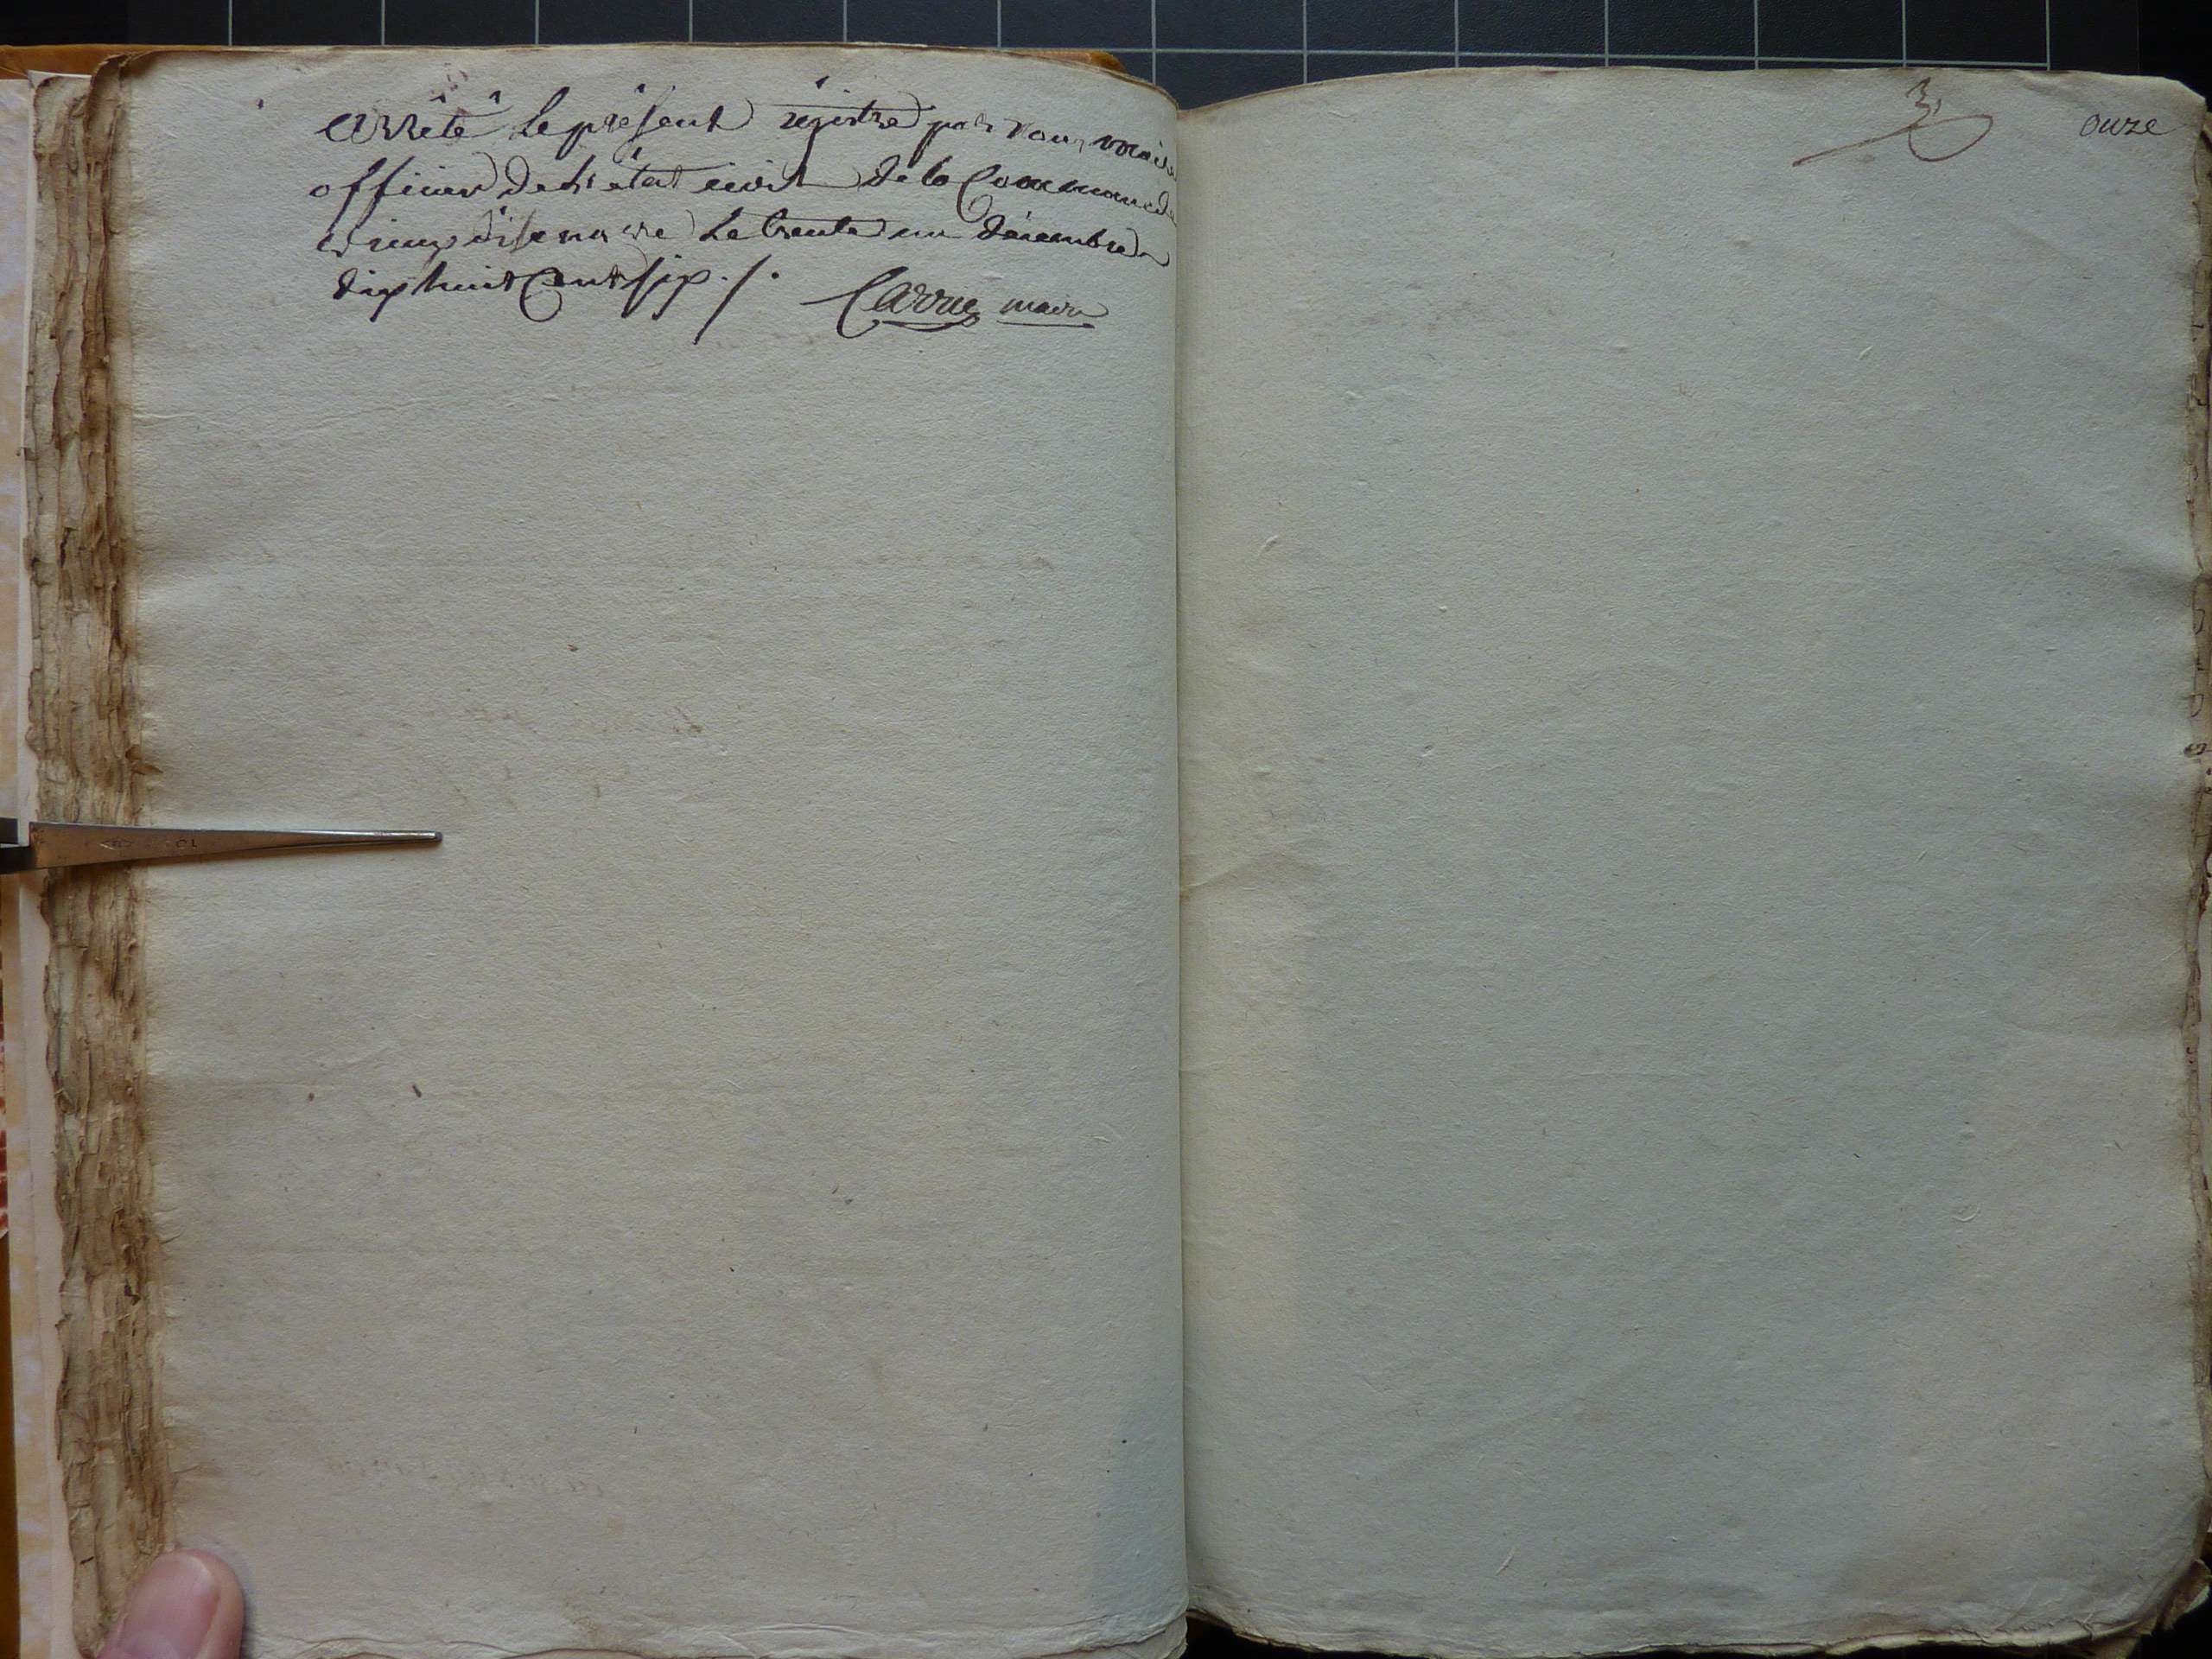 arrêté le présent régistre par Nous maire
officier de l'état civil de la Commune de
le trente un décembre
dix huit Cent six ./.
Carrue maire
onze